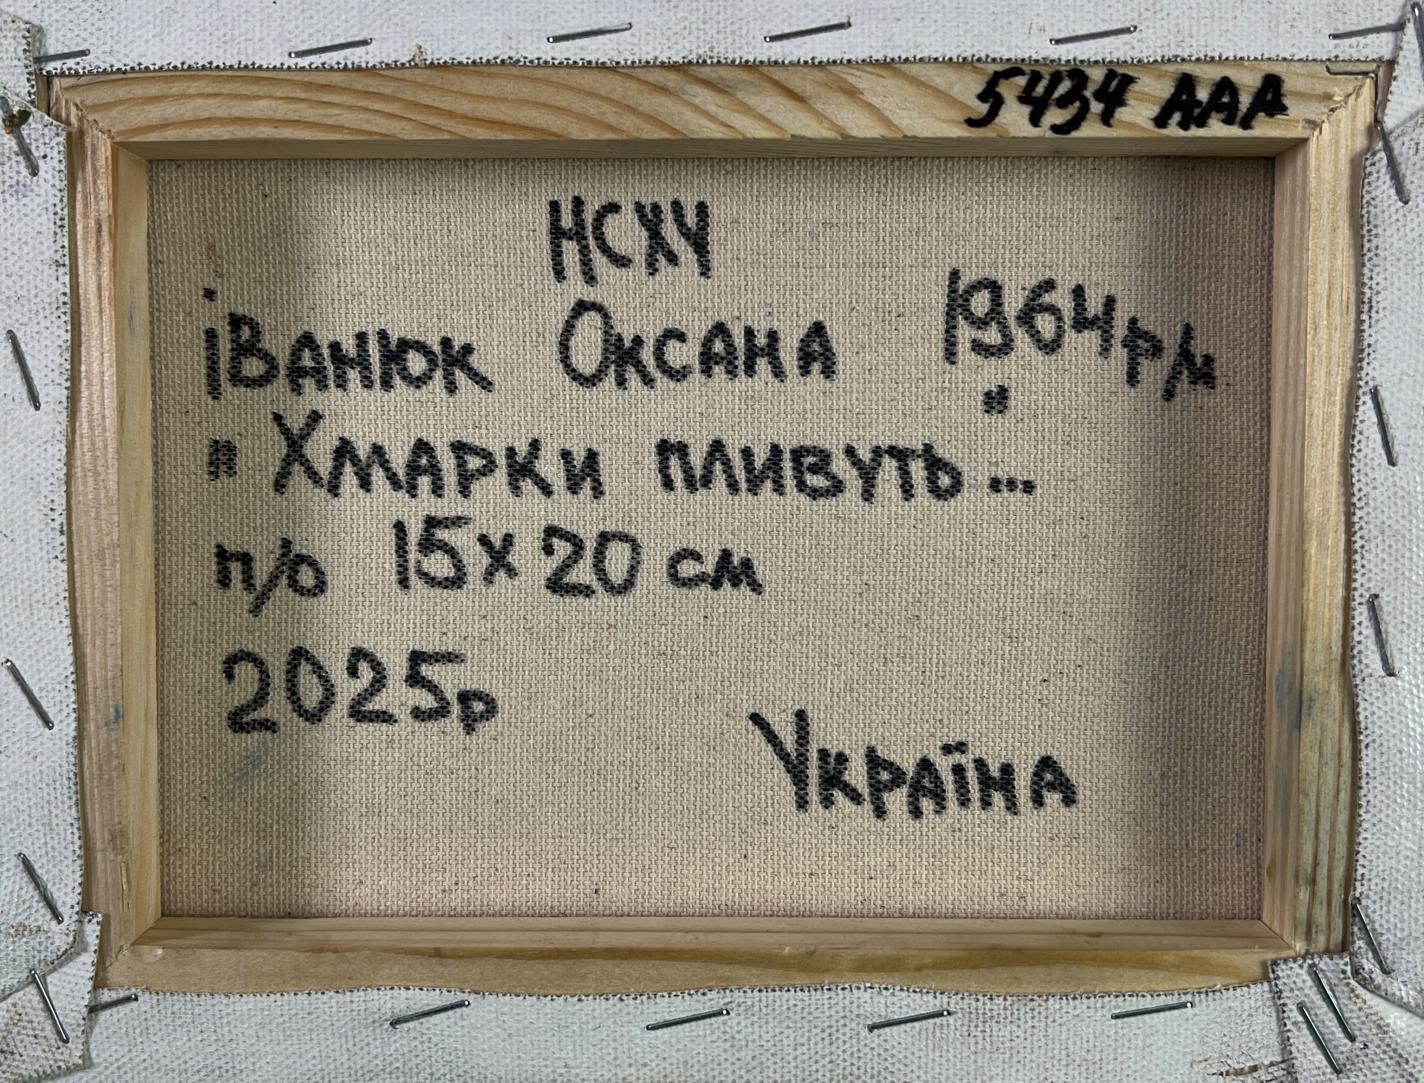 5434 ААА
НСХУ
іВАНЮК ОКСАНА 1964р/м
"ХМАРКИ ПЛИВУТЬ..."
п/о 15х20 см
2025р
УКРАЇНА